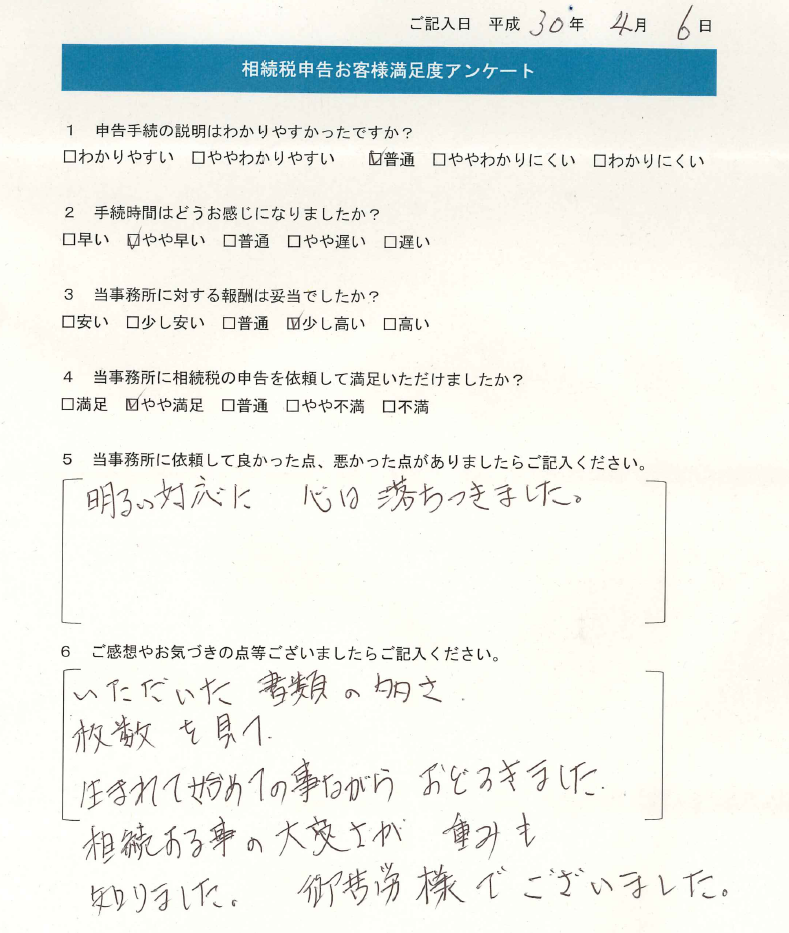 ご記入日 平成 30年 4月 6日
相続税申告お客様満足度アンケート
1 申告手続の説明はわかりやすかったですか?
□わかりやすい □ややわかりやすい ☑普通 □ややわかりにくい □わかりにくい
2 手続時間はどうお感じになりましたか?
□早い ☑やや早い □普通 □やや遅い □遅い
3 当事務所に対する報酬は妥当でしたか?
□安い □少し安い □普通 ☑少し高い □高い
4 当事務所に相続税の申告を依頼して満足いただけましたか?
□満足 ☑やや満足 □普通 □やや不満 □不満
5 当事務所に依頼して良かった点、悪かった点がありましたらご記入ください。
明るい対応に 心は 落ちつきました。
6 ご感想やお気づきの点等ございましたらご記入ください。
いただいた 書類の多さ
枚数を見て
生まれて始めての事ながら おどろきました
相続ある事の大変さが 重みも
知りました。 御苦労様でございました。